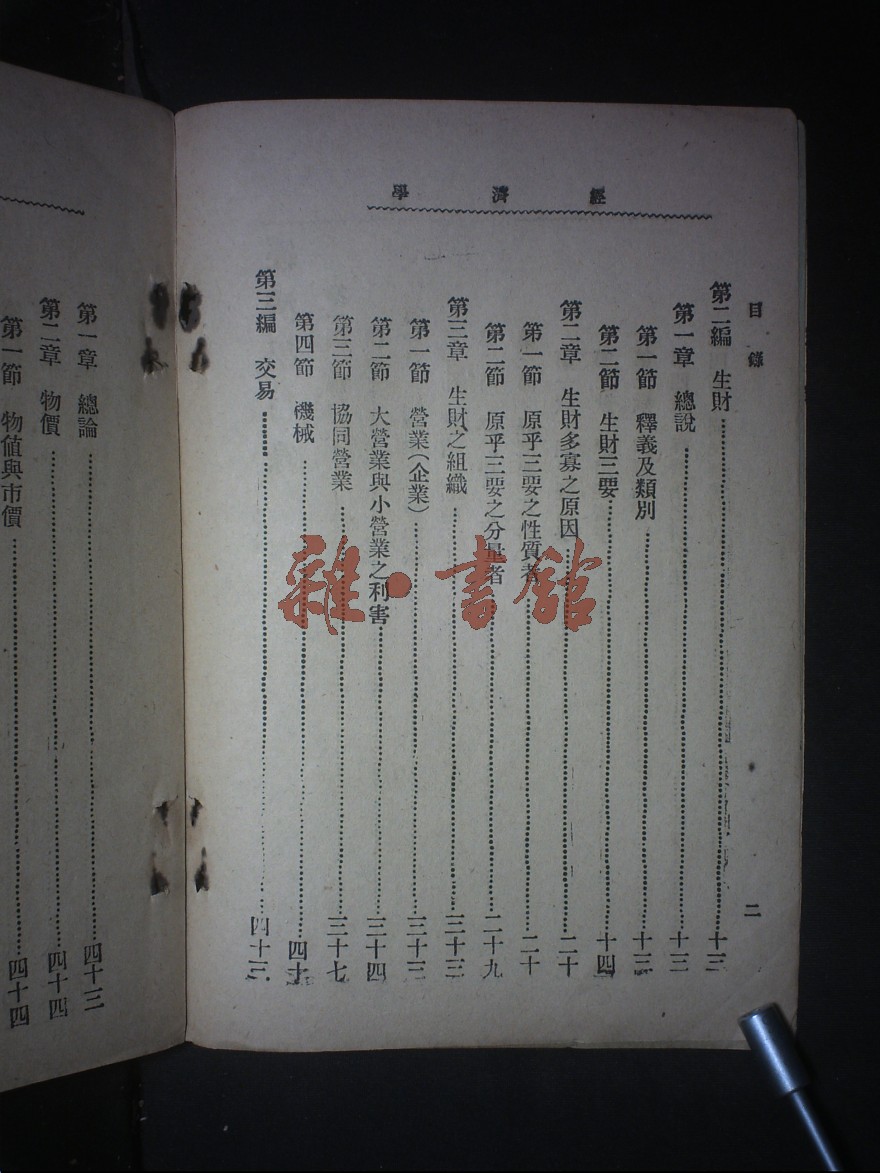 經濟學
目錄 二
第二編 生財 十三
第一章 總說 十三
第一節 釋義及類別 十三
第二節 生財三要 十四
第二章 生財多寡之原因 二十
第一節 原乎三要之性質者 二十
第二節 原乎三要之分量者 二十九
第三章 生財之組織 三十三
第一節 營業(企業) 三十三
第二節 大營業與小營業之利害 三十四
第三節 協同營業 三十七
第四節 機械 四十
第三編 交易 四十三
第一章 總論 四十三
第二章 物價 四十四
第一節 物値與市價 四十四
雜·書館